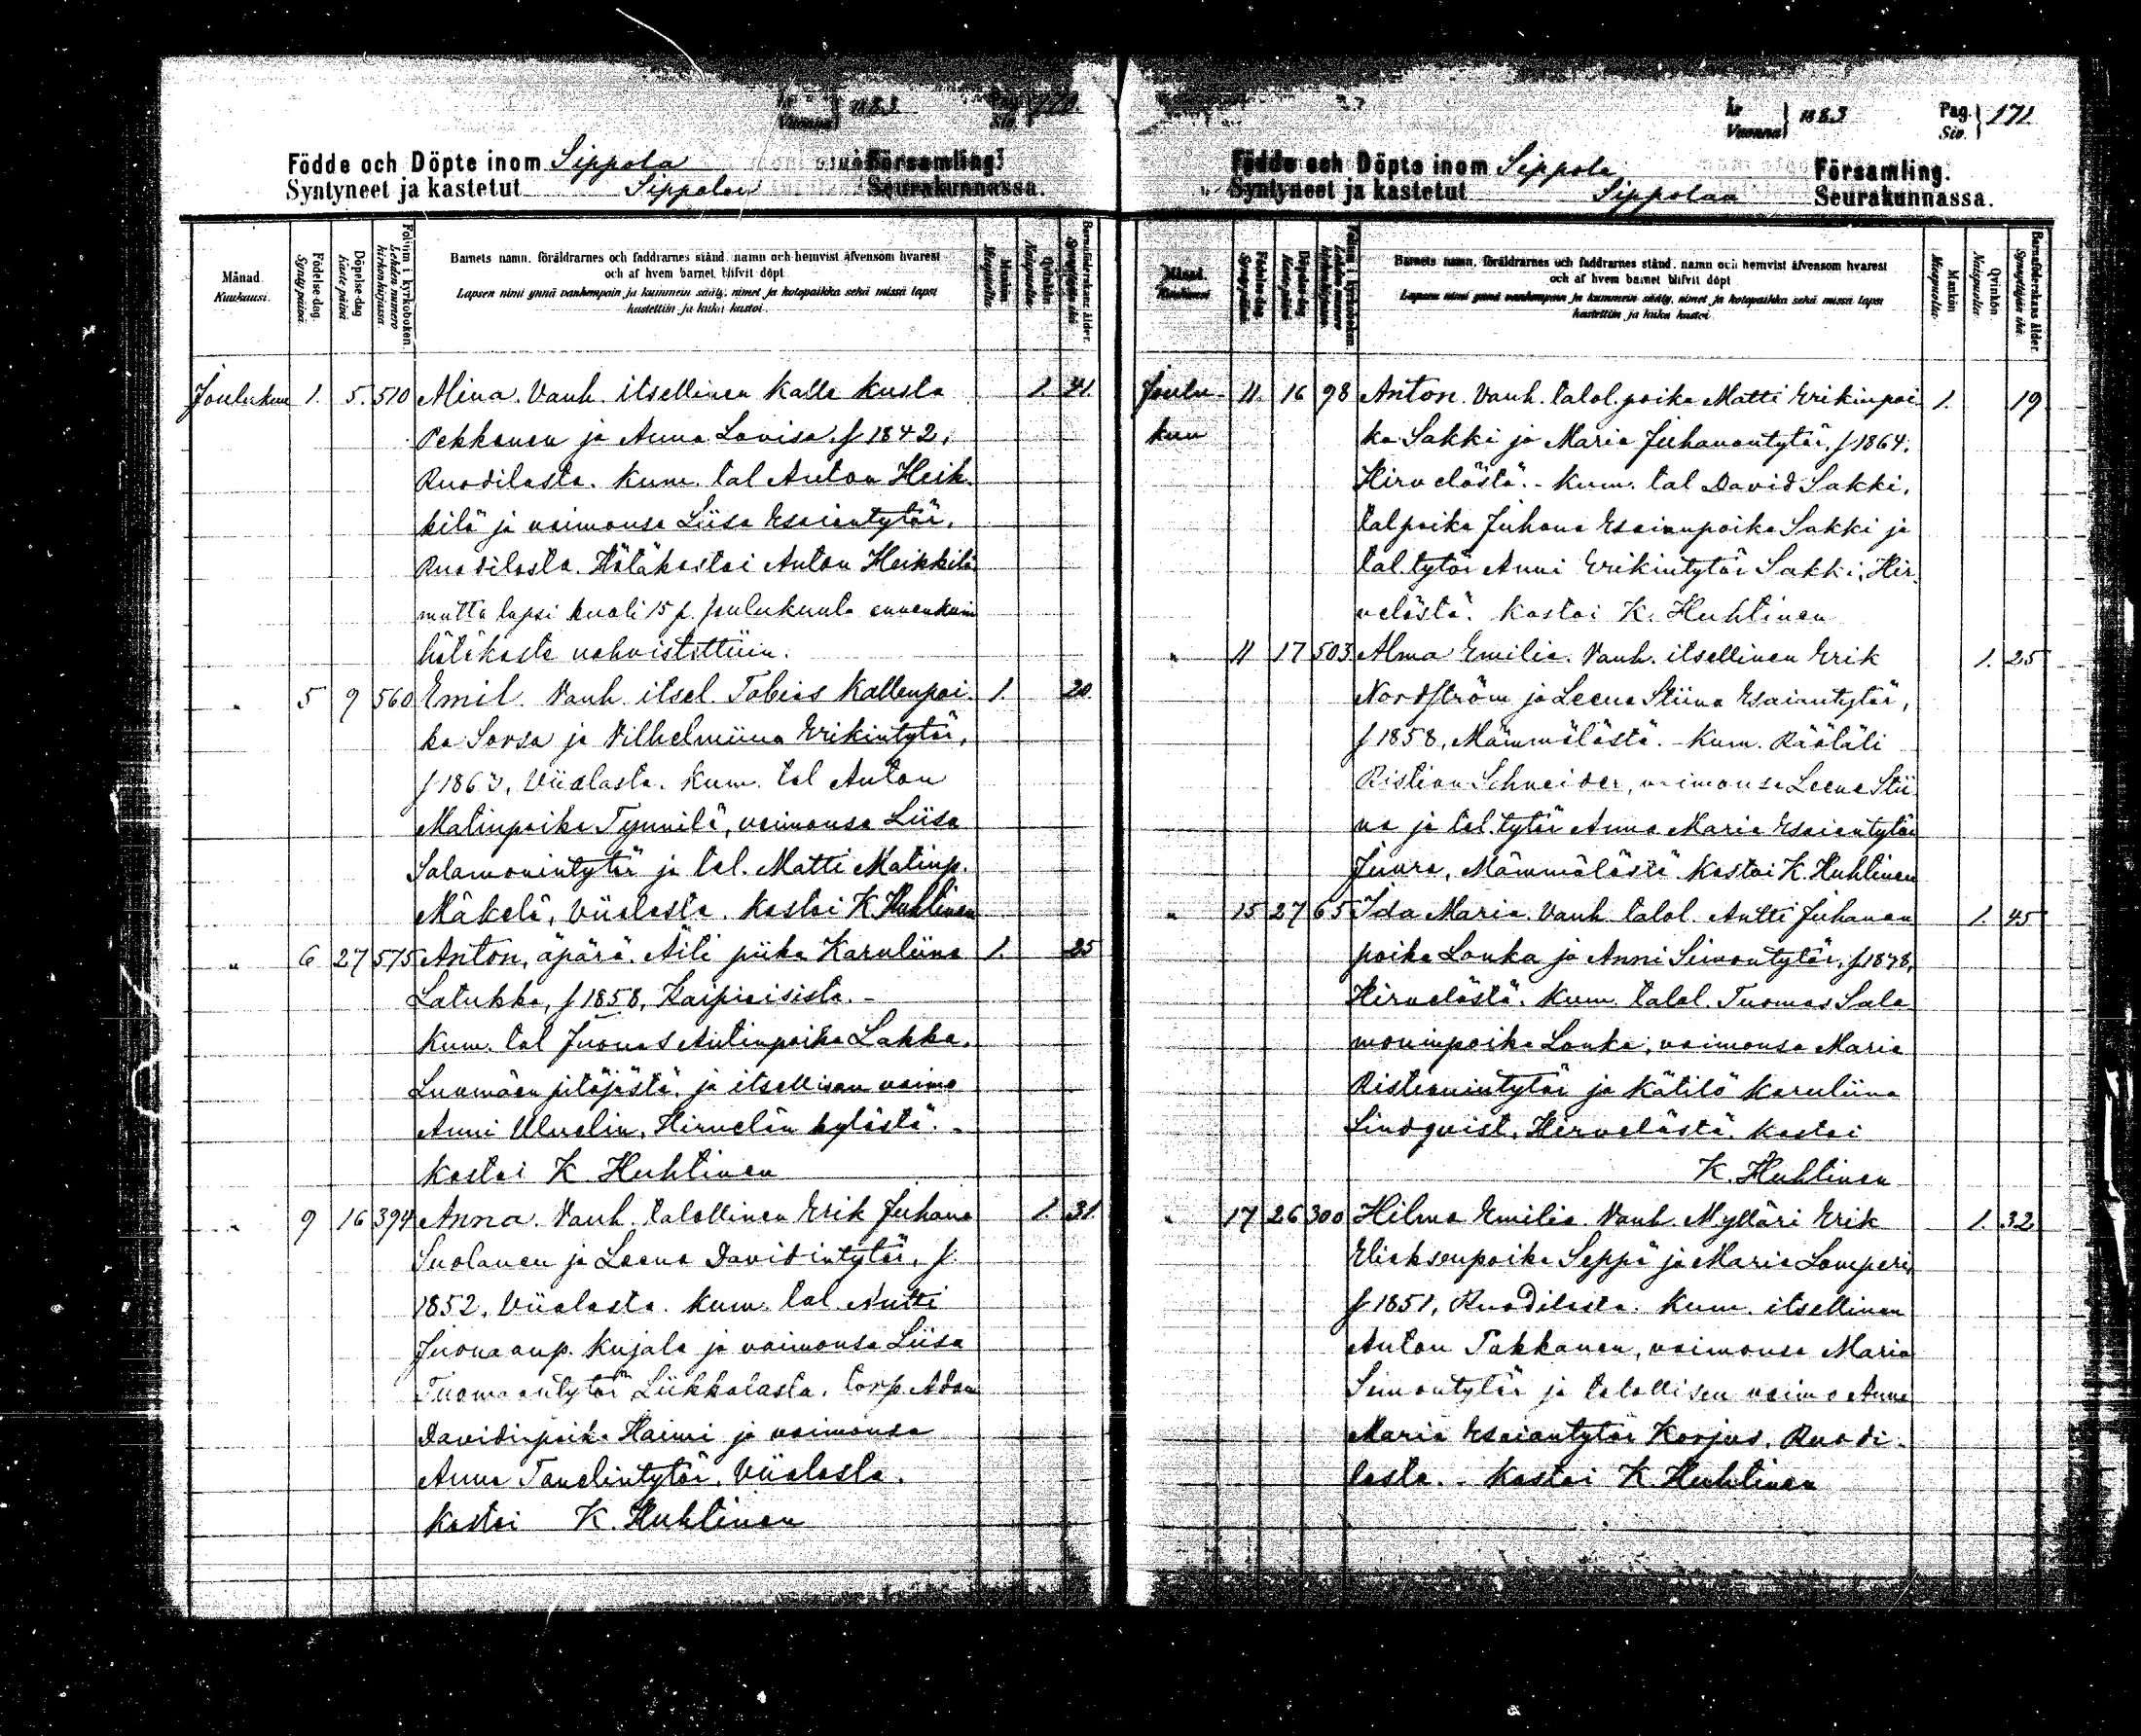 År Vuonna } 1883 Pag. Siv. } 170.
Födde och Döpte inom Sippola Församling.
Syntyneet ja kastetut Sippolan Seurakunnassa.
Månad. Kuukausi.
Födelse dag. Synty päivä.
Döpelse dag Kaste päivä
Folium i kyrkoboken. Lehden numero kirkonkirjassa
Barnets namn, föräldrarnes och faddrarnes stånd, namn och hemvist äfvensom hvarest
och af hvem barnet blifvit döpt
Lapsen nimi ynnä vanhempain ja kummein sääty, nimet ja kotopaikka sekä missä lapsi
kastettiin ja kuka kastoi.
Mankön Miespuolia.
Qvinkön Naispuolia.
Barnaföderskans ålder. Synnyttäjän ikä
Joulukuu 1. 5. 510 Alina. Vanh. itsellinen Kalle Kusta 1. 41.
Pekkanen ja Anna Lovisa, s 1842,
Ruodilasta. Kum. tal Anton Heik-
kilä ja vaimonsa Liisa Esaiantytär,
Ruodilasta. Hätäkastoi Anton Heikkilä
mutta lapsi kuoli 15 p. joulukuuta ennenkuin
hätäkaste vahvistettiin.
" 5 9 560 Emil. Vanh. itsel. Tobias Kallenpoi- 1. 20.
ka Sorsa ja Vilhelmiina Erikintytär,
s 1863, Viialasta. Kum. tal Anton
Matinpoika Tynnilä, vaimonsa Liisa
Salamonintytär ja tal. Matti Matinp.
Mäkelä, Viialasta. Kastoi K Huhtinen
" 6 27 575 Anton, äpärä. Äiti piika Karuliina 1. 25
Latukka, s 1858, Kaipiaisista. -
Kum. tal Juonas Antinpoika Lakka,
Luumäen pitäjästä, ja itsellisen vaimo
Anni Ulvelin, Hirvelän kylästä. -
Kastoi K. Huhtinen
" 9 16 394 Anna. Vanh. talollinen Erik Juhana 1. 31.
Suolanen ja Leena Davidintytär, s
1852, Viialasta. Kum. tal Antti
Juonaanp. Kujala ja vaimonsa Liisa
Tuomaantytär Liikkalasta, torp. Adam
Davidinpoika Haimi ja vaimonsa
Anna Tanelintytär, Viialasta.
Kastoi K. Huhtinen
År Vuonna } 1883 Pag. Siv. } 171
Födde och Döpte inom Sippola Församling.
Syntyneet ja kastetut Sippolan Seurakunnassa.
Månad. Kuukausi
Födelse dag. Synty päivä.
Döpelse dag Kaste päivä
Folium i kyrkoboken. Lehden numero kirkonkirjassa
Barnets namn, föräldrarnes och faddrarnes stånd, namn och hemvist äfvensom hvarest
och af hvem barnet blifvit döpt
Lapsen nimi ynnä vanhempain ja kummein sääty, nimet ja kotopaikka sekä missä lapsi
kastettiin ja kuka kastoi
Mankön Miespuolia.
Qvinkön Naispuolia.
Barnaföderskans ålder. Synnyttäjän ikä.
Joulu- 11. 16 98 Anton. Vanh. talol. poika Matti Erikinpoi- 1. 19
kuu ka Sakki ja Maria Juhanantytär, s 1864,
Hirvelästä. - Kum. tal David Sakki,
talpoika Juhana Esaianpoika Sakki ja
tal. tytär Anni Erikintytär Sakki, Hir-
velästä. Kastoi K. Huhtinen
" 11 17 503 Alma Emilia. Vanh. itsellinen Erik 1. 25
Nordström ja Leena Stiina Esaiantytär,
s 1858, Mämmälästä. - Kum. Räätäli
Ristian Schneider, vaimonsa Leena Stii-
na ja tal. tytär Anna Maria Esaiantytär
Juure, Mämmälästä. Kastoi K. Huhtinen
" 15 27 65 Ida Maria. Vanh. talol. Antti Juhanan 1. 45
poika Louka ja Anni Simontytär, s 1838,
Hirvelästä. Kum. talol. Tuomas Sala
moninpoika Louka, vaimonsa Maria
Ristianintytär ja Kätilö Karuliina
Lindqvist, Hirvelästä. Kastoi
K. Huhtinen
" 17 26 300 Hilma Emilia. Vanh. Mylläri Erik 1. 32
Eliaksenpoika Seppä ja Maria Lomperi,
s 1851, Ruodilasta. Kum. itsellinen
Anton Pakkanen, vaimonsa Maria
Simontytär ja talollisen vaimo Anna
Maria Esaiantytär Korjus, Ruodi-
lasta. - Kastoi K. Huhtinen